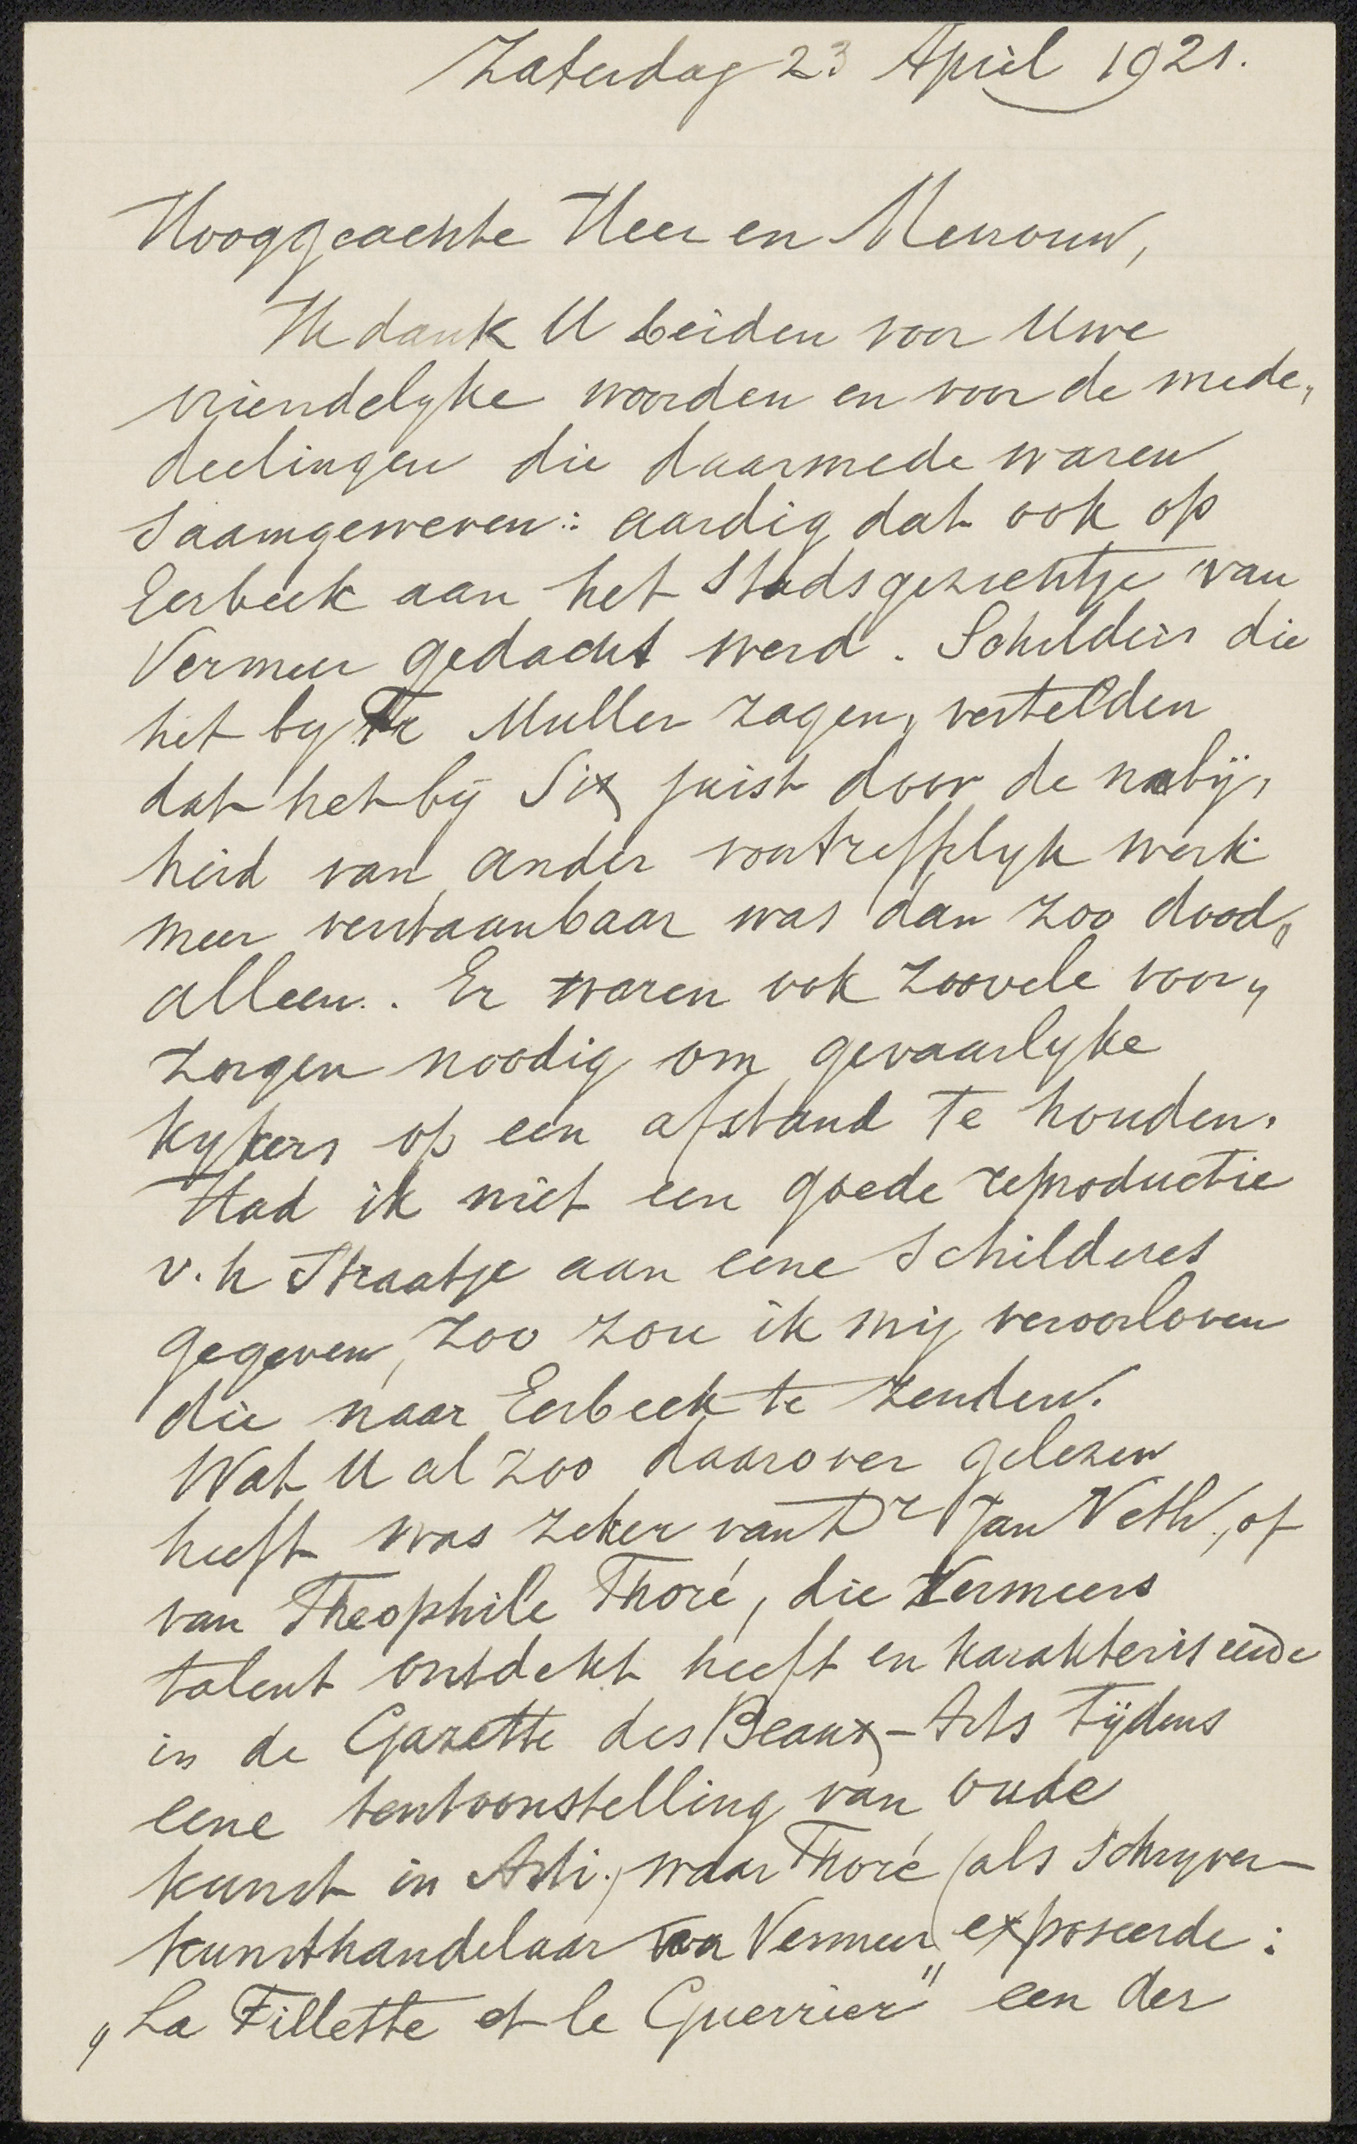 Zaterdag 23 April 1921.
Hooggeachte Heer en Mevrouw,
Ik dank U beiden voor Uwe
vriendelyke woorden en voor de mede„
deelingen die daarmede waren
saamgeweven: aardig dat ook op
Eerbeek aan het Stadsgezichtje van
Vermeer gedacht werd. Schilders die
het by Fr Muller zagen, vertelden
dat het bij Six juist door de nabij„
heid van ander voortreffelyk werk
meer verstaanbaar was dan zoo dood„
alleen. Er waren ook zoovele voor„
zorgen noodig om gevaarlyke
kykers op een afstand te houden.
Had ik niet een goede reproductie
v. h Straatje aan eene schilderes
gegeven, zoo zou ik mij veroorloven
die naar Eerbeek te zenden.
Wat U al zoo daarover gelezen
heeft was zeker van Dr Jan Veth, of
van Theophile Thoré, die Vermeers
talent ontdekt heeft en karakteriseerde
in de Gazette des Beaux-Arts tijdens
eene tentoonstelling van oude
kunst in Arti, waar Thoré (als schryver-
kunsthandelaar) Vermeer exposeerde:
„La Fillette et le Guerrier" een der